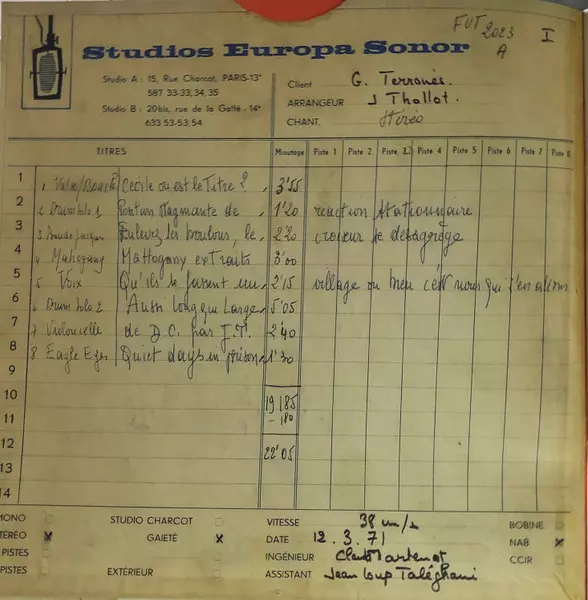 FUT 2023 I
A
Studios Europa Sonor
Studio A : 15, Rue Charcot, PARIS-13e
587 33-33, 34, 35
Studio B : 20bis, rue de la Gaîté - 14e
633 53-53, 54
Client G. Terronès.
ARRANGEUR J Thollot.
CHANT. Stéréo
TITRES Minutage Piste 1 Piste 2 Piste 3 Piste 4 Piste 5 Piste 6 Piste 7 Piste 8
1 1 Cécile où est le Titre ? 3'55
2 2 Drum Solo 1 stagnante de 1'20 réaction stationnaire
3 3 Enlevez les boulons, le 2'20 croiseur se désagrège
4 4 Mahogany Mathogany extraits 3'00
5 5 Voix Qu'ils se fassent un 2'15 village ou bien c'est nous qui
6 6 Drum Solo 2 Aussi long que large 5'05
7 7 Violoncelle de D.C. par J.T. 2'40
8 8 Eagle Eyes Quiet days in prison 1'30
9
10 19 185
11 - 180
12 22'05
13
14
MONO STUDIO CHARCOT VITESSE 38 cm/s BOBINE
STÉRÉO X GAIETÉ X DATE 12.3.71 NAB X
PISTES INGÉNIEUR Claude Martenot CCIR
PISTES EXTÉRIEUR ASSISTANT Jean Loup Taléghani